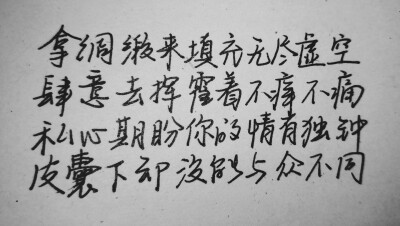 拿绸缎来填充无尽虚空
肆意去挥霍着不痒不痛
私心期盼你的情有独钟
皮囊下却没能与众不同